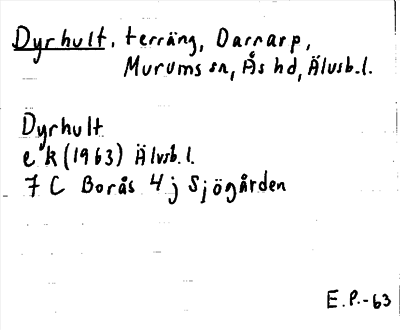 Dyrhult, terräng, Darrarp,
Murums sn, Ås hd, Älvsb.l.
Dyrhult
e k (1963) Älvsb.l.
7 C Borås 4 j Sjögården
E.P.-63